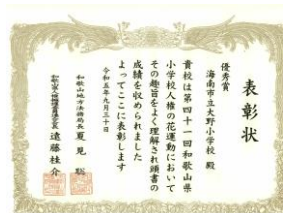 表彰状
優秀賞
海南市立大野小学校 殿
貴校は第四十一回和歌山県
小学校人権の花運動において
その趣旨をよく理解され頭書の
成績を収められました
よってここに表彰します
令和五年九月三十日
和歌山地方法務局長 夏見 聡
和歌山県人権擁護委員連合会長 遠藤桂介